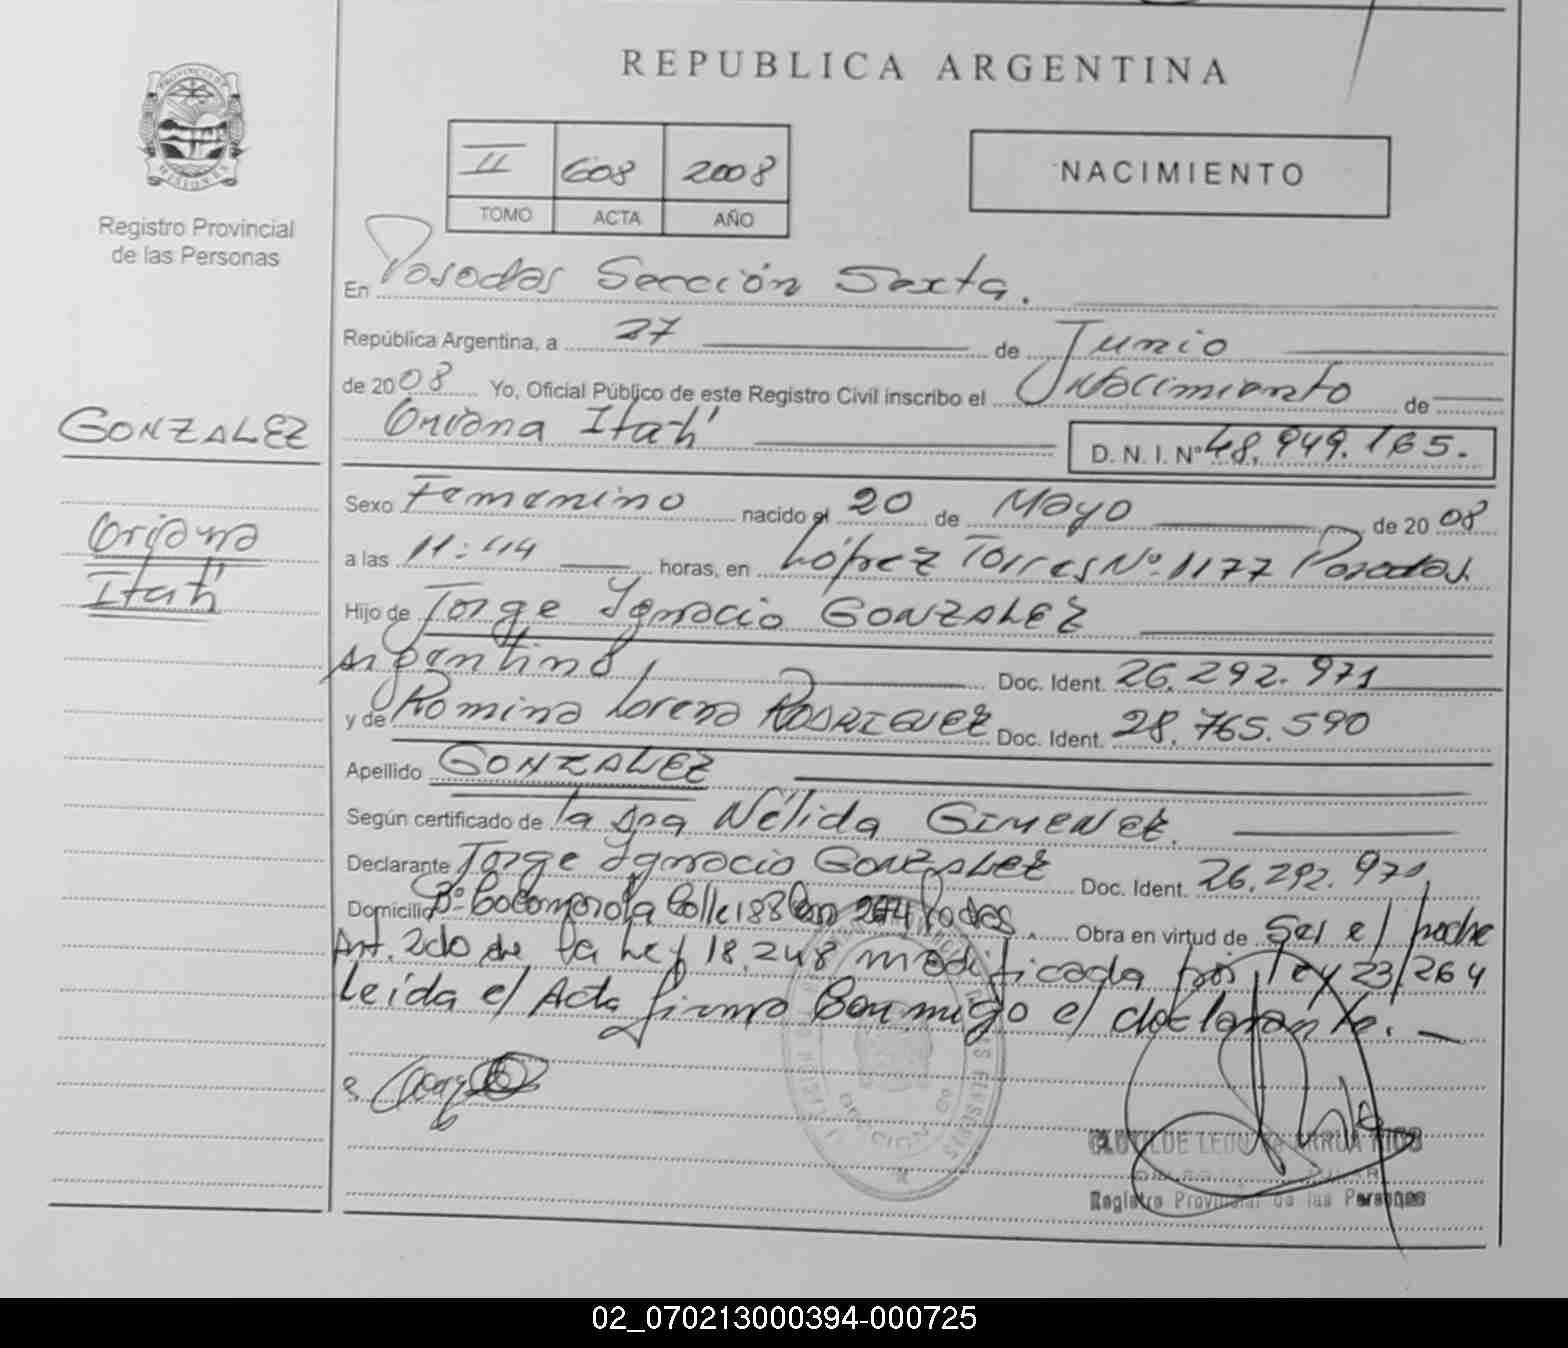 REPUBLICA ARGENTINA
PROVINCIA
MISIONES
Registro Provincial
de las Personas
II 608 2008
TOMO ACTA AÑO
NACIMIENTO
En Posadas Sección Sexta.
República Argentina, a 27 de Junio
de 2008 Yo, Oficial Público de este Registro Civil inscribo el Nacimiento de
GONZALEZ
Oriana Itatí D. N. I. Nº 48.949.165.
Sexo Femenino nacido el 20 de Mayo de 2008
Oriana
a las 11:44 horas, en López Torres Nº 1177 Posadas.
Itatí
Hijo de Jorge Ignacio GONZALEZ
Argentino, Doc. Ident. 26.292.971
y de Romina Lorena RODRIGUEZ Doc. Ident. 28.765.590
Apellido GONZALEZ
Según certificado de la Nélida GIMENEZ.
Declarante Jorge Ignacio GONZALEZ Doc. Ident. 26.292.971
Domicilio Bº Cocomarola Calle 188 Posadas. Obra en virtud de Ser el padre
Art. 2do de la Ley 18.248 modificada por Ley 23/264
Leída el Acta firma Conmigo el declarante.
Registro Provincial de las Personas
02_070213000394-000725